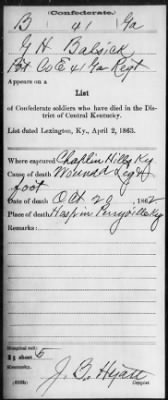 (Confederate.)
B 41 Ga
G H Balsick
Pvt Co E 41 Ga Regt
Appears on a
List
of Confederate soldiers who have died in the Dis-
trict of Central Kentucky.
List dated Lexington, Ky., April 2, 1863.
Where captured Chaplin Hills Ky
Cause of death Wound Leg &
foot
Date of death Oct 20, 1862
Place of death Hosp in Perryville Ky
Remarks:
Hospital ref:
sheet 5
Kentucky.
J. B. Hyatt